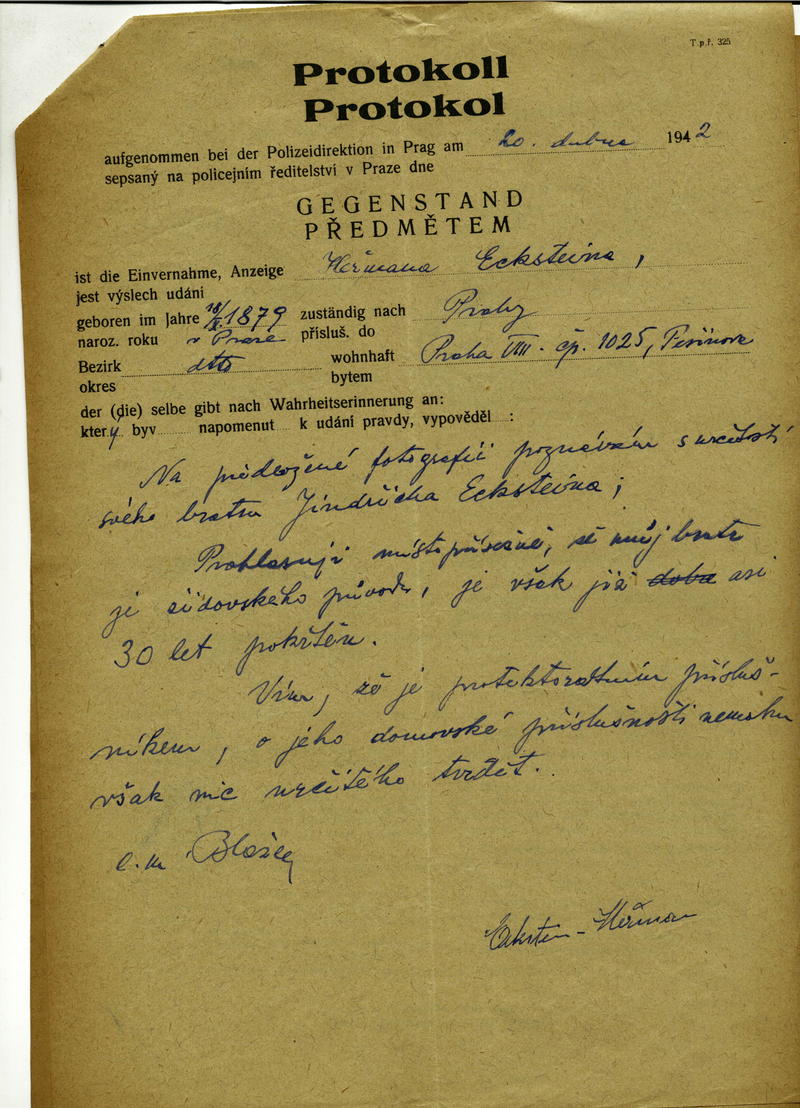 T.p.ř. 325
Protokoll
Protokol
aufgenommen bei der Polizeidirektion in Prag am 20. dubna 1942
sepsaný na policejním ředitelství v Praze dne
GEGENSTAND
PŘEDMĚTEM
ist die Einvernahme, Anzeige Heřmana Ecksteina,
jest výslech udání
geboren im Jahre 1879 zuständig nach Prahy
naroz. roku v Praze přísluš. do
Bezirk dtto wohnhaft Praha VIII. čp. 1025,
okres bytem
der (die) selbe gibt nach Wahrheitserinnerung an:
který byv napomenut k udání pravdy, vypověděl :
Na předložené fotografii poznávám s určitostí
svého bratra Jindřicha Ecksteina;
Prohlašuji místopřísežně, že můj bratr
je židovského původu, je však již doba asi
30 let pokřtěn.
Vím, že je protektorátním přísluš-
níkem, o jeho domovské příslušnosti nemohu
však nic určitého tvrdit.
Ekstein Heřman